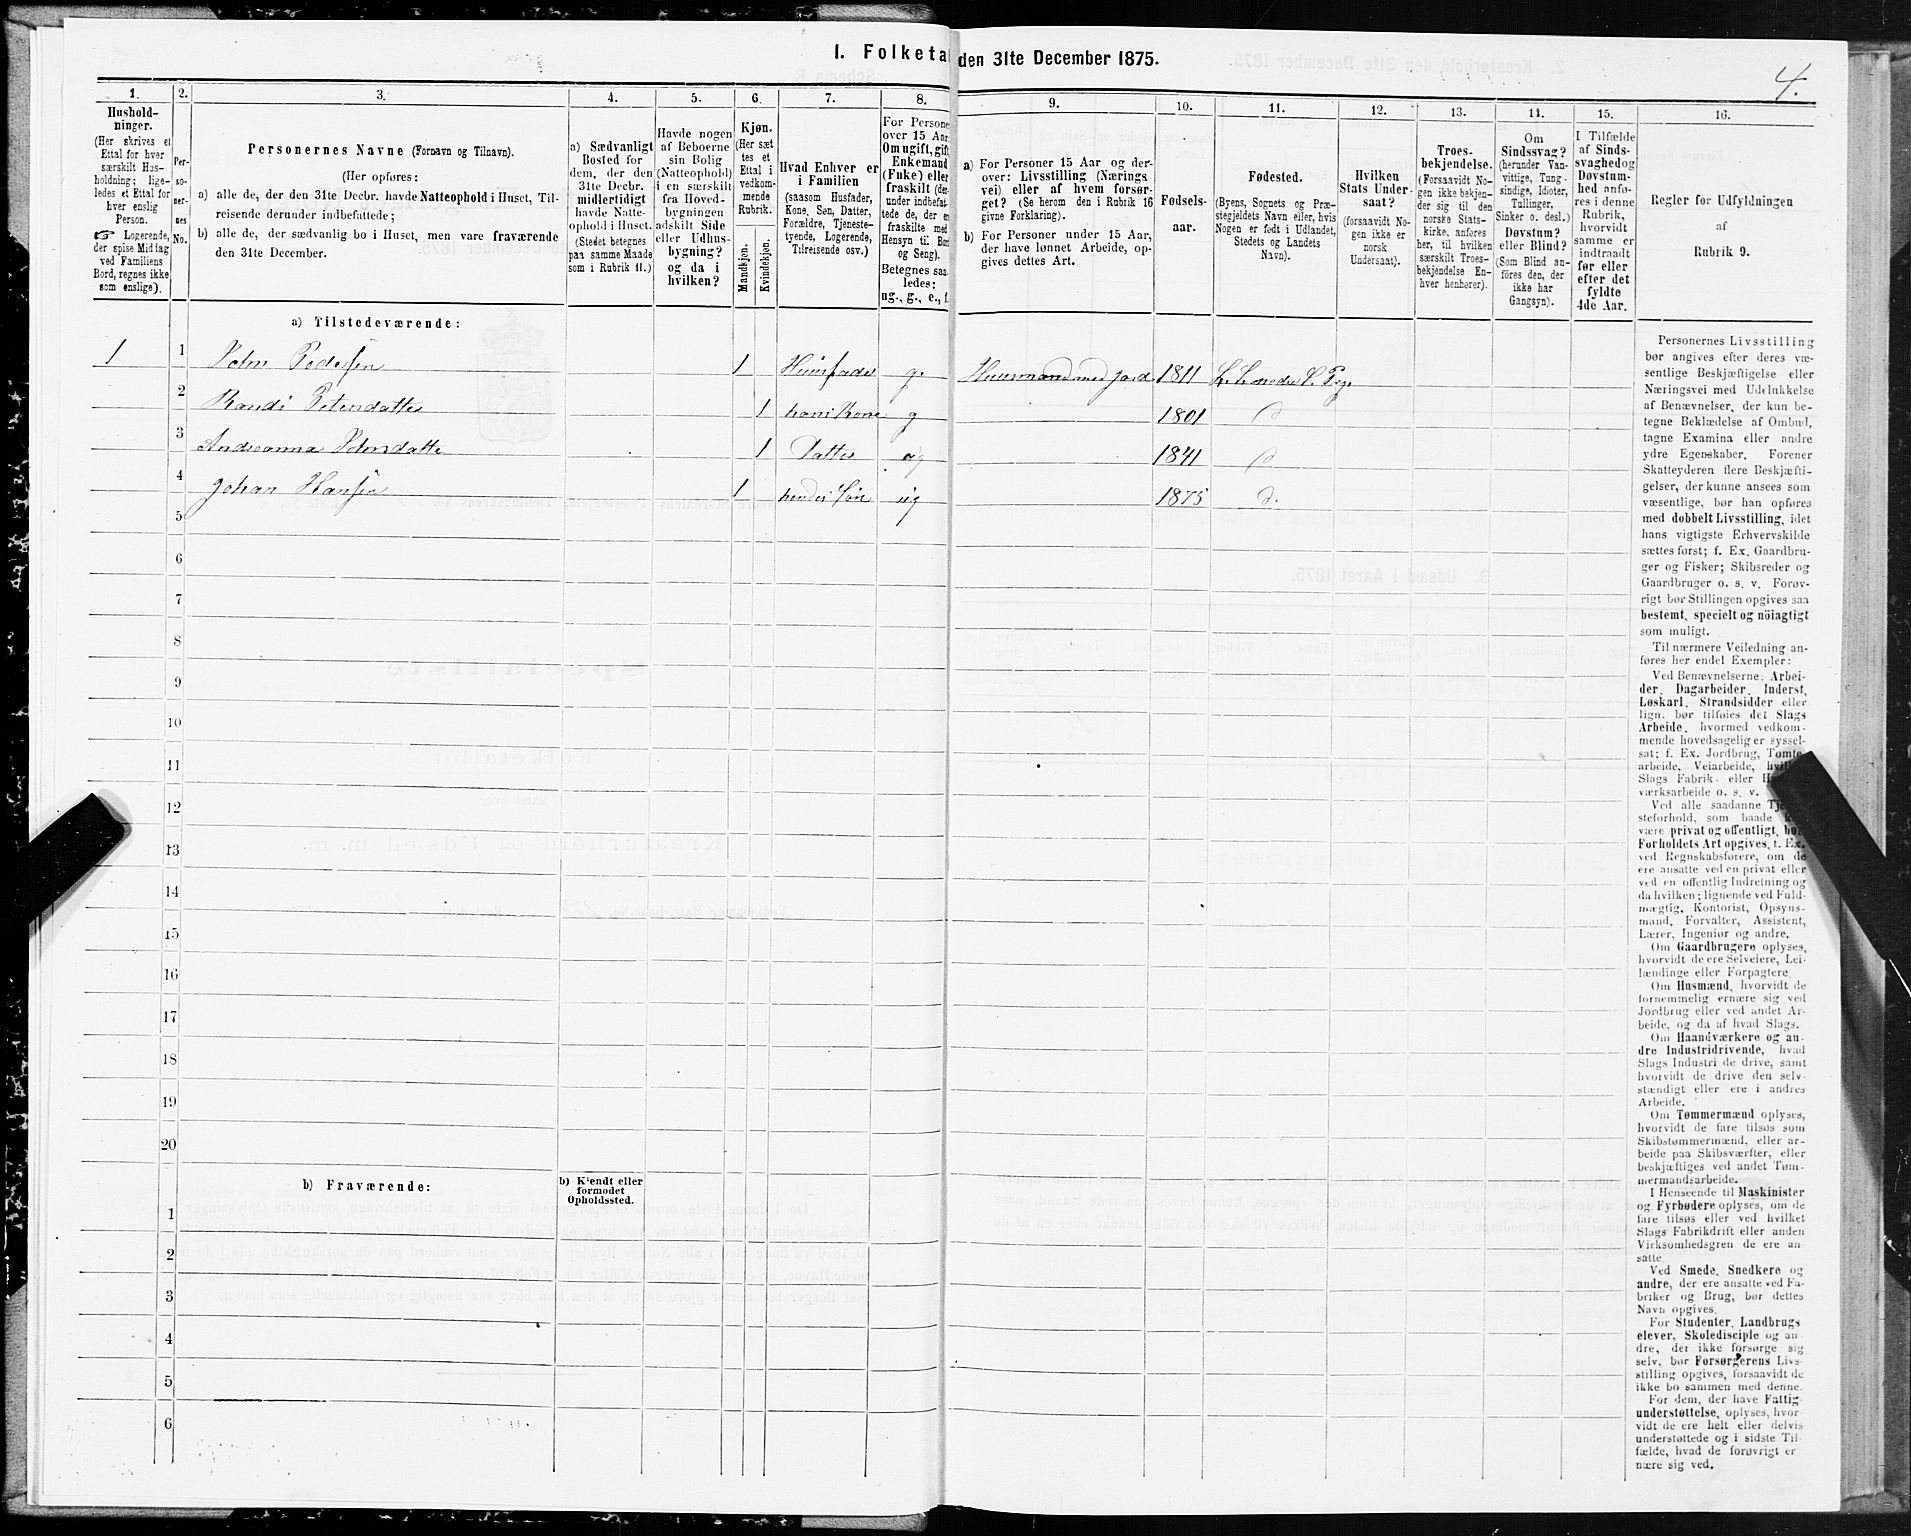 I. Folketa den 31te December 1875.
4.
1. 2. 3. 4. 5. 6. 7. 8. 9. 10. 11. 12. 13. 14. 15. 16.
Hushold-
ninger.
(Her skrives et
Ettal for hver
særskilt Hus-
holdning; lige-
ledes et Ettal for
hver enslig
Person.
☞ Logerende,
der spise Middag
ved Familiens
Bord, regnes ikke
som enslige).
Per-
so-
ner-
nes
No.
Personernes Navne (Fornavn og Tilnavn).
(Her opføres:
a) alle de, der den 31te Decbr. havde Natteophold i Huset, Til-
reisende derunder indbefattede;
b) alle de, der sædvanlig bo i Huset, men vare fraværende
den 31te December.
a) Sædvanligt
Bosted for
dem, der den
31te Decbr.
midlertidigt
havde Natte-
ophold i Huset.
(Stedet betegnes
paa samme Maade
som i Rubrik 11.)
Havde nogen
af Beboerne
sin Bolig
(Natteophold)
i en særskilt
fra Hoved-
bygningen
adskilt Side
eller Udhus-
bygning?
og da i
hvilken?
Kjøn.
(Her sæt
tes et
Ettal i
vedkom-
mende
Rubrik.
Mandkjøn.
Kvindekjøn.
Hvad Enhver er
i Familien
(saasom Husfader,
Kone, Søn, Datter,
Forældre, Tjeneste-
tyende, Logerende,
Tilreisende osv.)
For Persone
over 15 Aar
Om ugift, gift
Enkemand
(Enke) eller
fraskilt (der-
under indbefat-
tede de, der er
fraskilte med
Hensyn til Bor
og Seng).
Betegnes saa-
ledes:
ug., g., e., f.
a) For Personer 15 Aar og der-
over: Livsstilling (Nærings
vei) eller af hvem forsør-
get? (Se herom den i Rubrik 16
givne Forklaring).
b) For Personer under 15 Aar,
der have lønnet Arbeide, op-
gives dettes Art.
Fødsels-
aar.
Fødested.
(Byens, Sognets og Præ-
stegjeldets Navn eller, hvis
Nogen er født i Udlandet,
Stedets og Landets
Navn).
Hvilken
Stats Under-
saat?
(forsaavidt No-
gen ikke er
norsk
Undersaat).
Troes-
bekjendelse.
(Forsaavidt No-
gen ikke bekjen-
der sig til den
norske Stats-
kirke, anføres
her, til hvilken
særskilt Troes-
bekjendelse En-
hver henhører).
Om
Sindssvag?
(herunder Van-
vittige, Tung-
sindige, Idioter,
Tullinger,
Sinker o. desl.)
Døvstum?
eller Blind?
(Som Blind an-
føres den, der
ikke har
Gangsyn).
I Tilfælde
af Sinds-
svaghed og
Døvstum-
hed anfø-
res i denne
Rubrik,
hvorvidt
samme er
indtraadt
før eller
efter det
fyldte
4de Aar.
Regler for Udfyldningen
af
Rubrik 9.
a) Tilstedeværende:
1 1 Pedersen 1 Huusfader g. Huusmand med Jord 1811
2 Randi 1 hans Kone g 1801 d
3 1 Datter ug 1841 d
4 Johan Hansen 1 hendes Søn ug 1875 d.
5
6
7
8
9
10
11
12
13
14
15
16
17
18
19
20
b) Fraværende:
b) Kjendt eller
formodet
Opholdssted.
1
2
3
4
5
6
Personernes Livsstilling
bør angives efter deres væ-
sentlige Beskjæftigelse eller
Næringsvei med Udelukkelse
af Benævnelser, der kun be-
tegne Beklædelse af Ombud,
tagne Examina eller andre
ydre Egenskaber. Forener
Skatteyderen flere Beskjæfti-
gelser, der kunne ansees som
væsentlige, bør han opføres
med dobbelt Livsstilling, idet
hans vigtigste Erhvervskilde
sættes først; f. Ex. Gaardbru-
ger og Fisker; Skibsreder og
Gaardbruger o. s. v. Forøv-
rigt bør Stillingen opgives saa
bestemt, specielt og nöiagtigt
som muligt.
Til nærmere Veiledning an-
føres her endel Exempler:
Ved Benævnelserne: Arbei-
der, Dagarbeider, Inderst,
Løskarl, Strandsidder eller
lign. bør tilføies det Slags
Arbeide, hvormed vedkom-
mende hovedsagelig er syssel-
sat; f. Ex. Jordbrug, Tomte-
arbeide, Veiarbeide, hvilket
Slags Fabrik- eller
værksarbeide o. s. v.
Ved alle saadanne
steforhold, som baade
være privat og offentligt, bør
Forholdets Art opgives, f. Ex.
ved Regnskabsførere, om de
ere ansatte ved en privat eller
ved en offentlig Indretning og
da hvilken; lignende ved Fuld-
mægtig, Kontorist, Opsyns-
mand, Forvalter, Assistent,
Lærer, Ingeniør og andre.
Om Gaardbrugere oplyses,
hvorvidt de ere Selveiere, Lei-
lændinge eller Forpagtere.
Om Husmænd, hvorvidt de
fornemmelig ernære sig ved
Jordbrug eller ved andet Ar-
beide, og da af hvad Slags.
Om Haandværkere og an-
dre Industridrivende, hvad
Slags Industri de drive, samt
hvorvidt de drive den selv-
stændigt eller ere i andres
Arbeide.
Om Tømmermænd oplyses,
hvorvidt de fare tilsøs som
Skibstømmermænd, eller ar-
beide paa Skibsværfter, eller
beskjæftiges ved andet Tøm-
mermandsarbeide.
I Henseende til Maskinister
og Fyrbødere oplyses, om de
fare tilsøs eller ved hvilket
Slags Fabrikdrift eller anden
Virksomhedsgren de ere an-
satte.
Ved Smede, Snedkere og
andre, der ere ansatte ved Fa-
briker og Brug, bør dettes
Navn opgives.
For Studenter, Landbrugs
elever, Skoledisciple og an-
dre, der ikke forsørge sig
selv, bør Forsørgerens Livs-
stilling opgives, forsaavidt de
ikke bo sammen med denne.
For dem, der have Fattig-
understøttelse, oplyses, hvor
vidt de ere helt eller delvis
understøttede og i sidste Til-
fælde, hvad de forøvrigt er
nære sig ved.